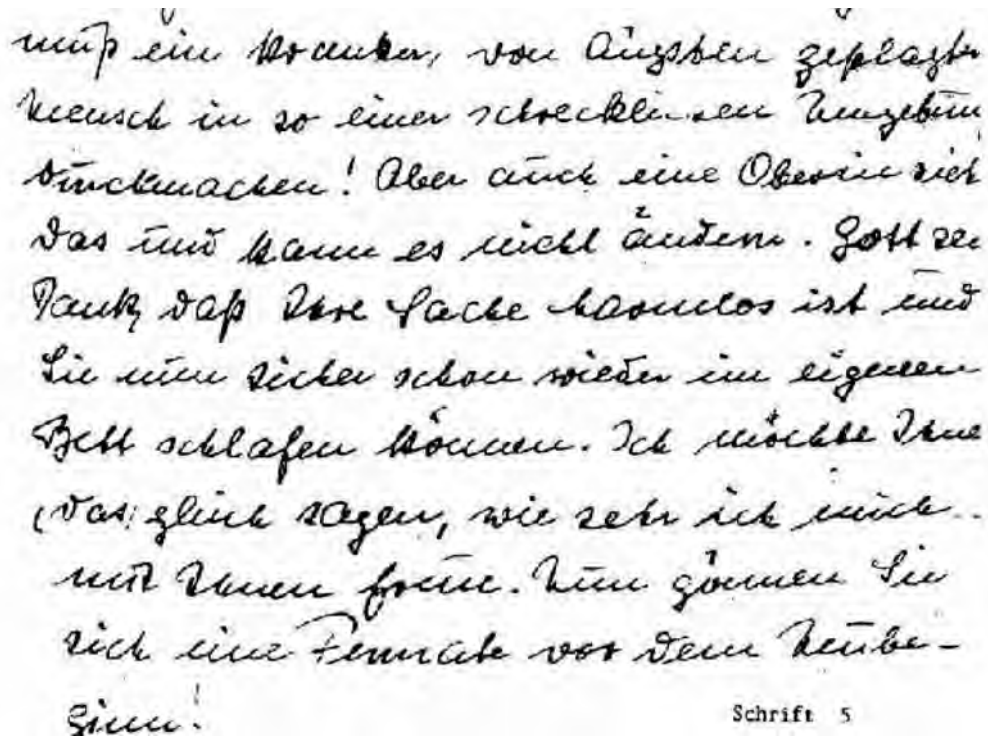 muß ein kranker, von Ängsten geplagter
Mensch in so einer schrecklichen Umgebun
durchmachen! Aber auch eine Oberin sieht
das und kann es nicht ändern. Gott sei
Dank, daß Ihre Sache harmlos ist und
Sie nun sicher schon wieder im eigenen
Bett schlafen können. Ich möchte Ihne
(das) gleich sagen, wie sehr ich mich
mit Ihnen freue. Nun gönnen Sie
sich eine vor dem Neube-
ginn!
Schrift 5